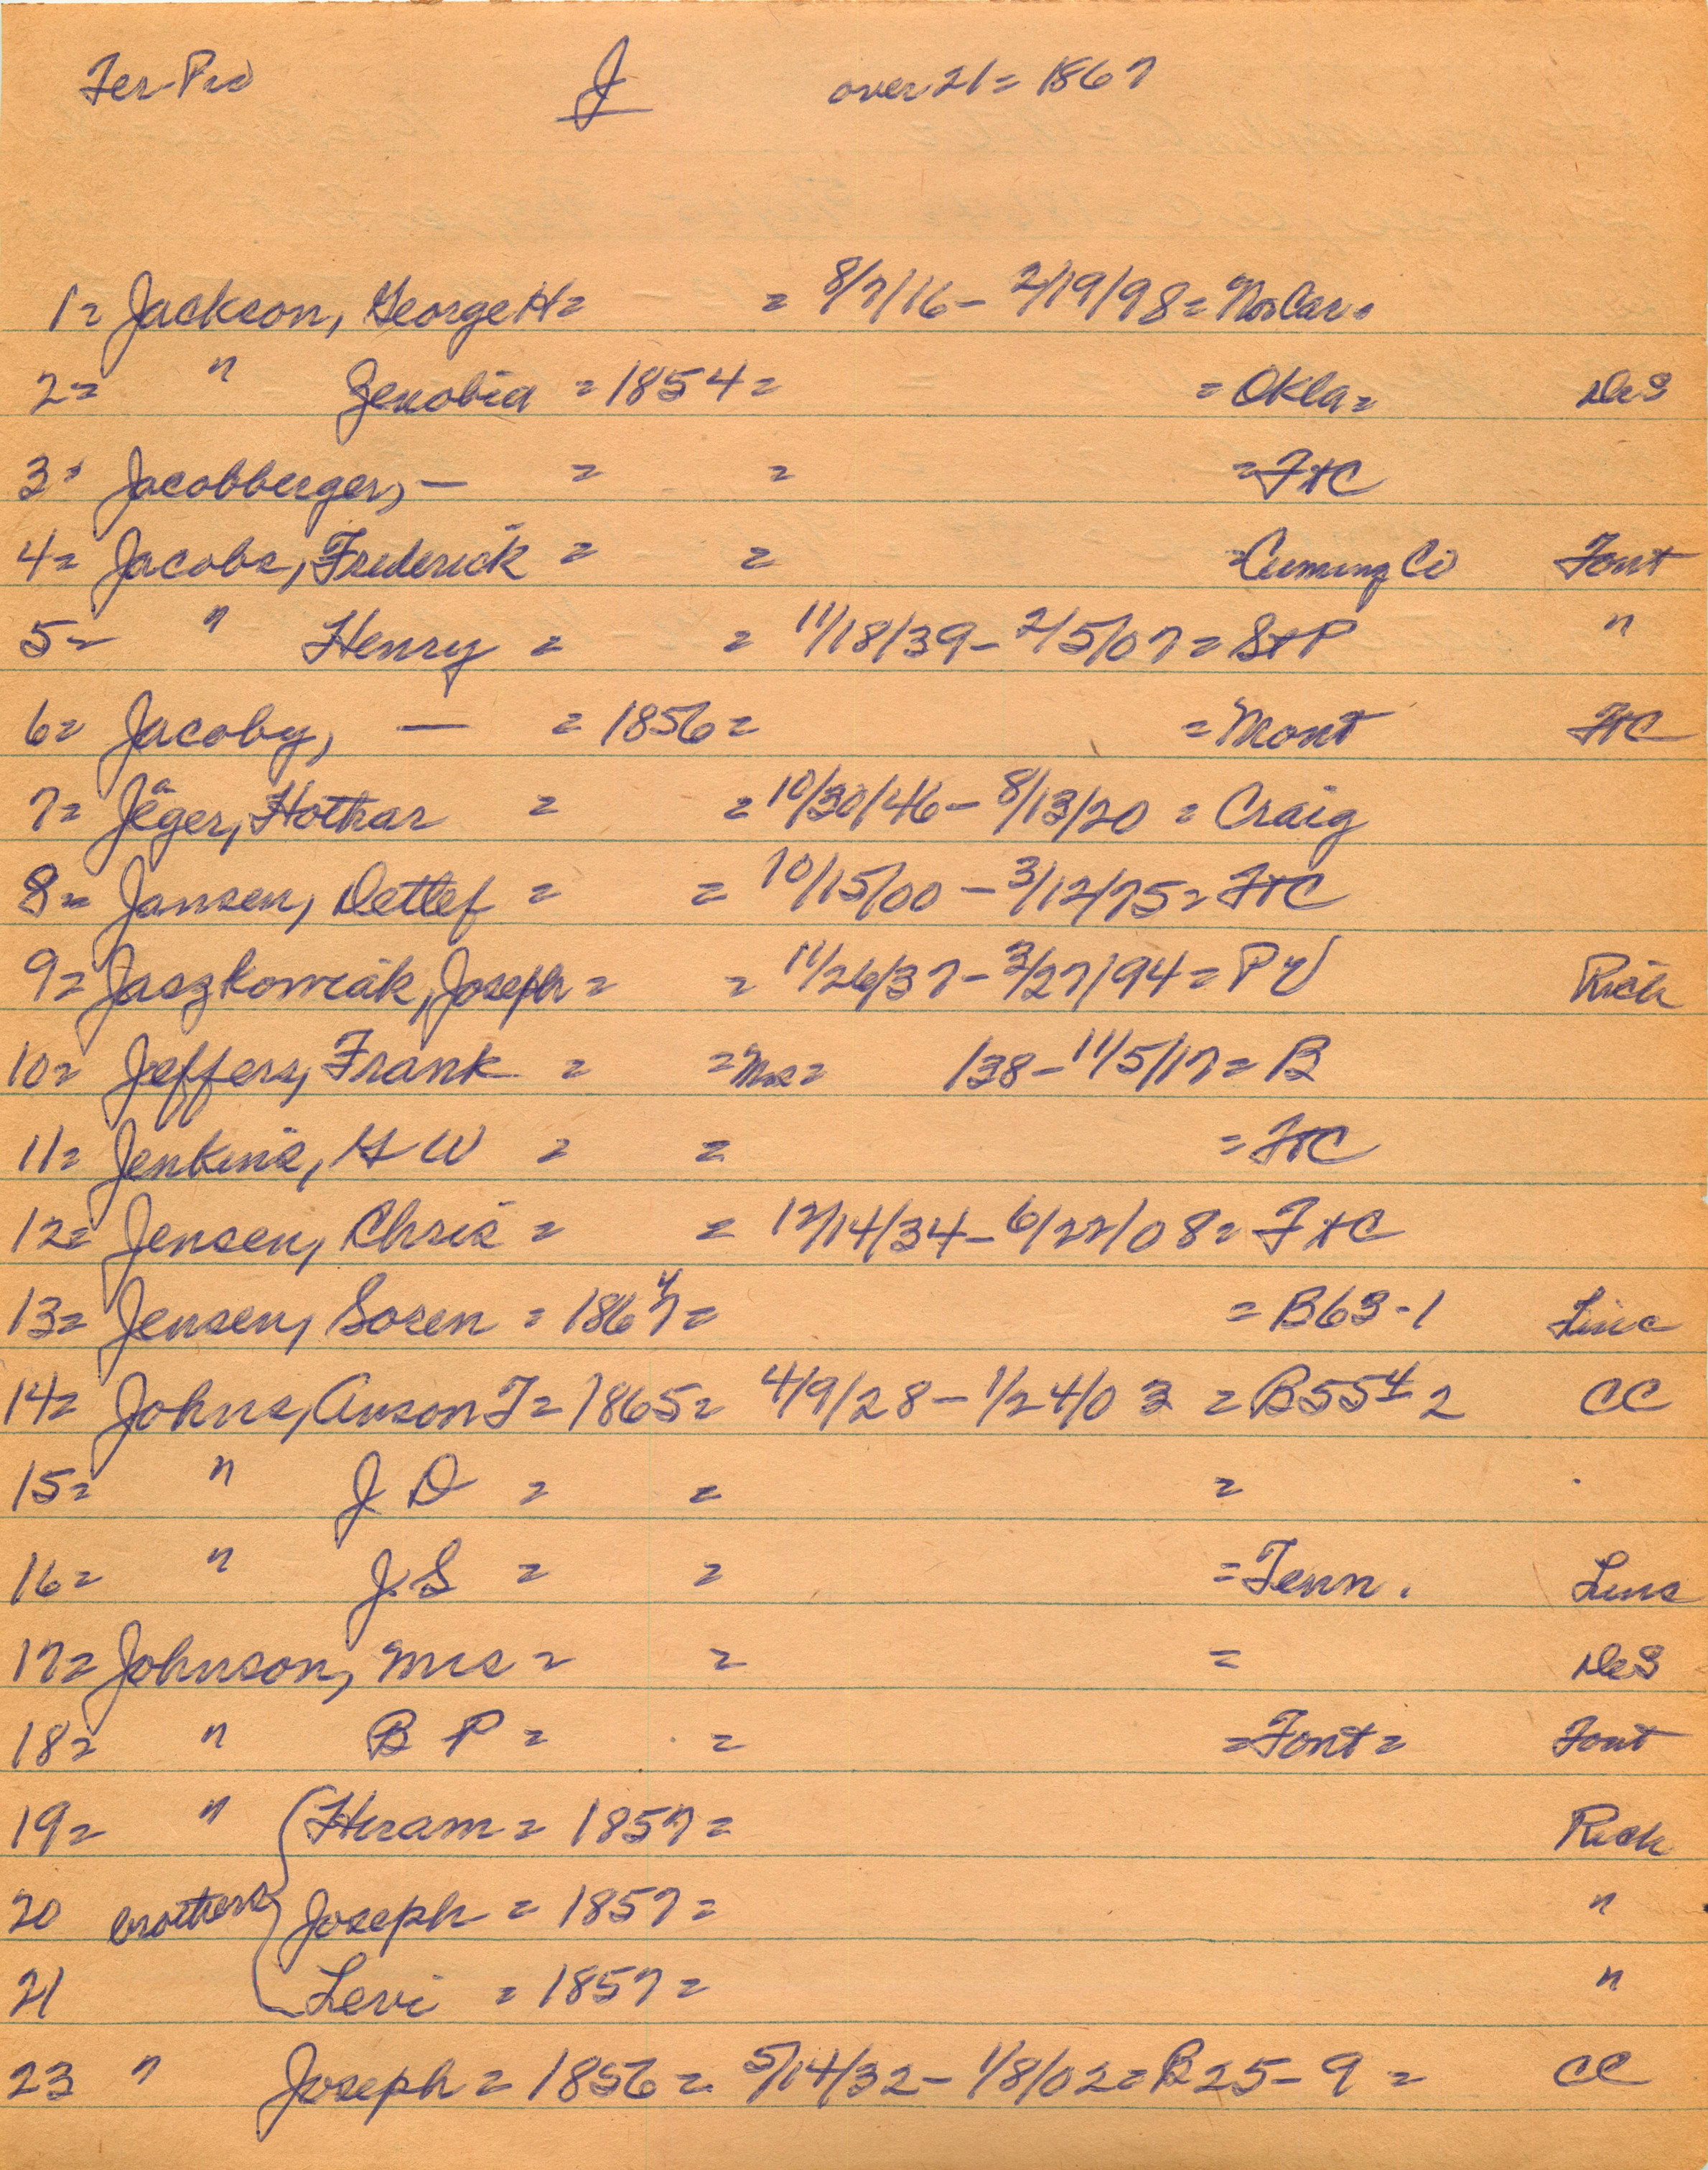 Ter-Pio J over 21 = 1867
1= Jackson, George H= = 8/7/16 - 2/19/98 = No Car.
2= " Zenobia = 1854 = = Okla = DeS
3= Jacobberger, - = = = FtC
4= Jacobs, Frederick = = = Cuming Co Font
5= " Henry = = 11/18/39 - 2/5/07 = StP "
6= Jacoby, — = 1856 = = Mont FtC
7= Jäger, Hothar = = 10/30/46 - 8/13/20 = Craig
8= Jansen, Detlef = = 10/15/00 - 3/12/75 = FtC
9= Jaszkowiak, Joseph = = 11/26/37 - 3/27/94 = PV Rich
10= Jeffers, Frank = = Mrs = 138 - 11/5/17 = B
11= Jenkins, G W = = = FtC
12= Jensen, Chris = = 12/14/34 - 6/22/08 = FtC
13= Jensen, Soren = 1867 = = B63-1 Linc
14= Johns, Anson T = 1865 = 4/9/28 - 1/24/03 = B55 4 2 CC
15= " J. D = = =
16= " J. S = = = Tenn. Linc
17= Johnson, Mrs = = = DeS
18= " B P = = = Font = Font
19= " Hiram = 1857 = Rich
20 brothers Joseph = 1857 = "
21 Levi = 1857 = "
23 " Joseph = 1856 = 5/14/32 - 1/8/02 = B25-9 = CC